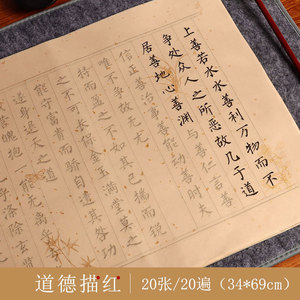 上善若水水善利万物而不
争处众人之所恶故几于道
居善地心善渊与善仁言善
信正善治事善能动善时夫
唯不争故无尤
持而盈之不如其已揣而锐
之不可长保金玉满堂莫之
能守富贵而骄自遗其咎功
遂身退天之道
道德描红
20张/20遍（34*69cm）